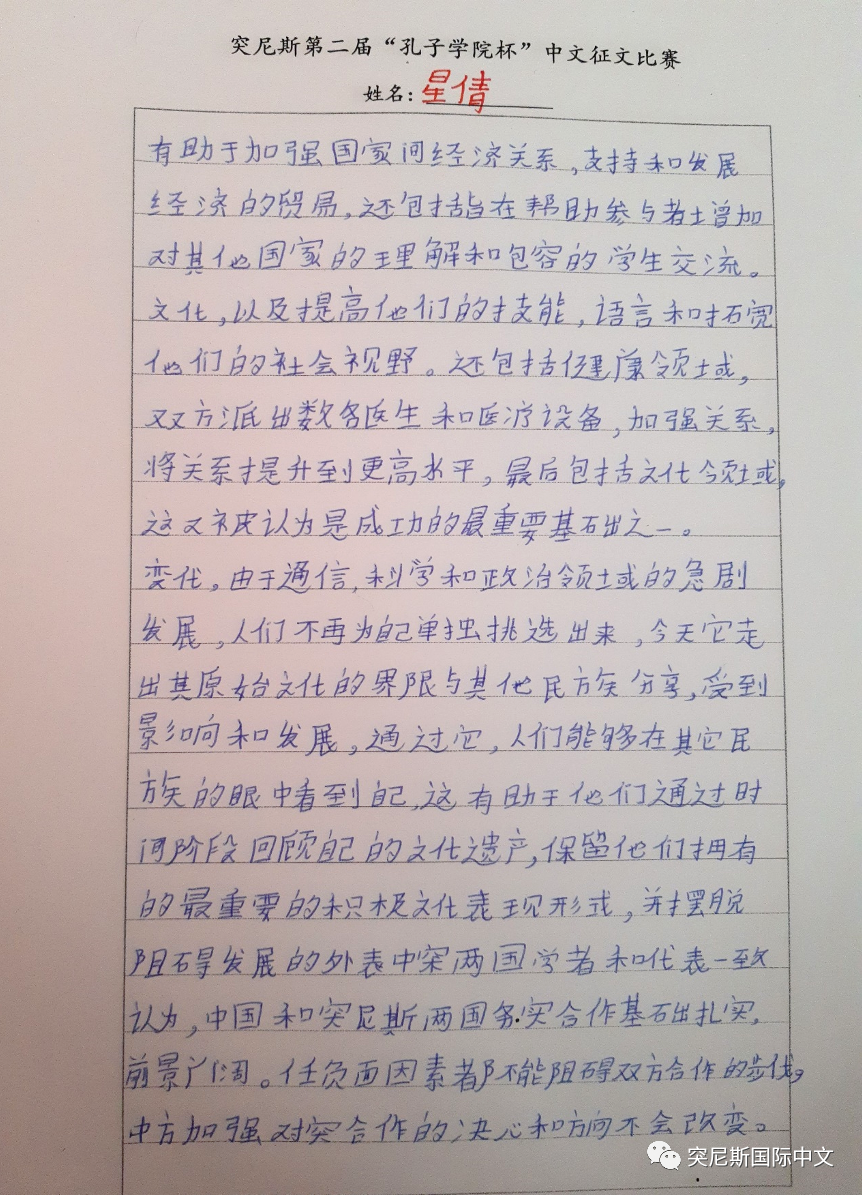 突尼斯第二届“孔子学院杯”中文征文比赛
姓名：星倩
有助于加强国家间经济关系，支持和发展
经济的贸易，还包括旨在帮助参与者增加
对其他国家的理解和包容的学生交流。
文化，以及提高他们的技能，语言和拓宽
他们的社会视野。还包括健康领域，
双方派出数名医生和医疗设备，加强关系，
将关系提升到更高水平，最后包括文化领域，
这又被认为是成功的最重要基础之一。
变化。由于通信，科学和政治领域的急剧
发展，人们不再为自己单独挑选出来，今天它走
出其原始文化的界限与其他民族分享，受到
影响和发展，通过它，人们能够在其它民
族的眼中看到自己，这有助于他们通过时
间阶段回顾自己的文化遗产，保留他们拥有
的最重要的积极文化表现形式，并摆脱
阻碍发展的外表中突两国学者和代表一致
认为，中国和突尼斯两国务实合作基础扎实，
前景广阔。任负面因素都不能阻碍双方合作的步伐，
中方加强对突合作的决心和方向不会改变。
突尼斯国际中文